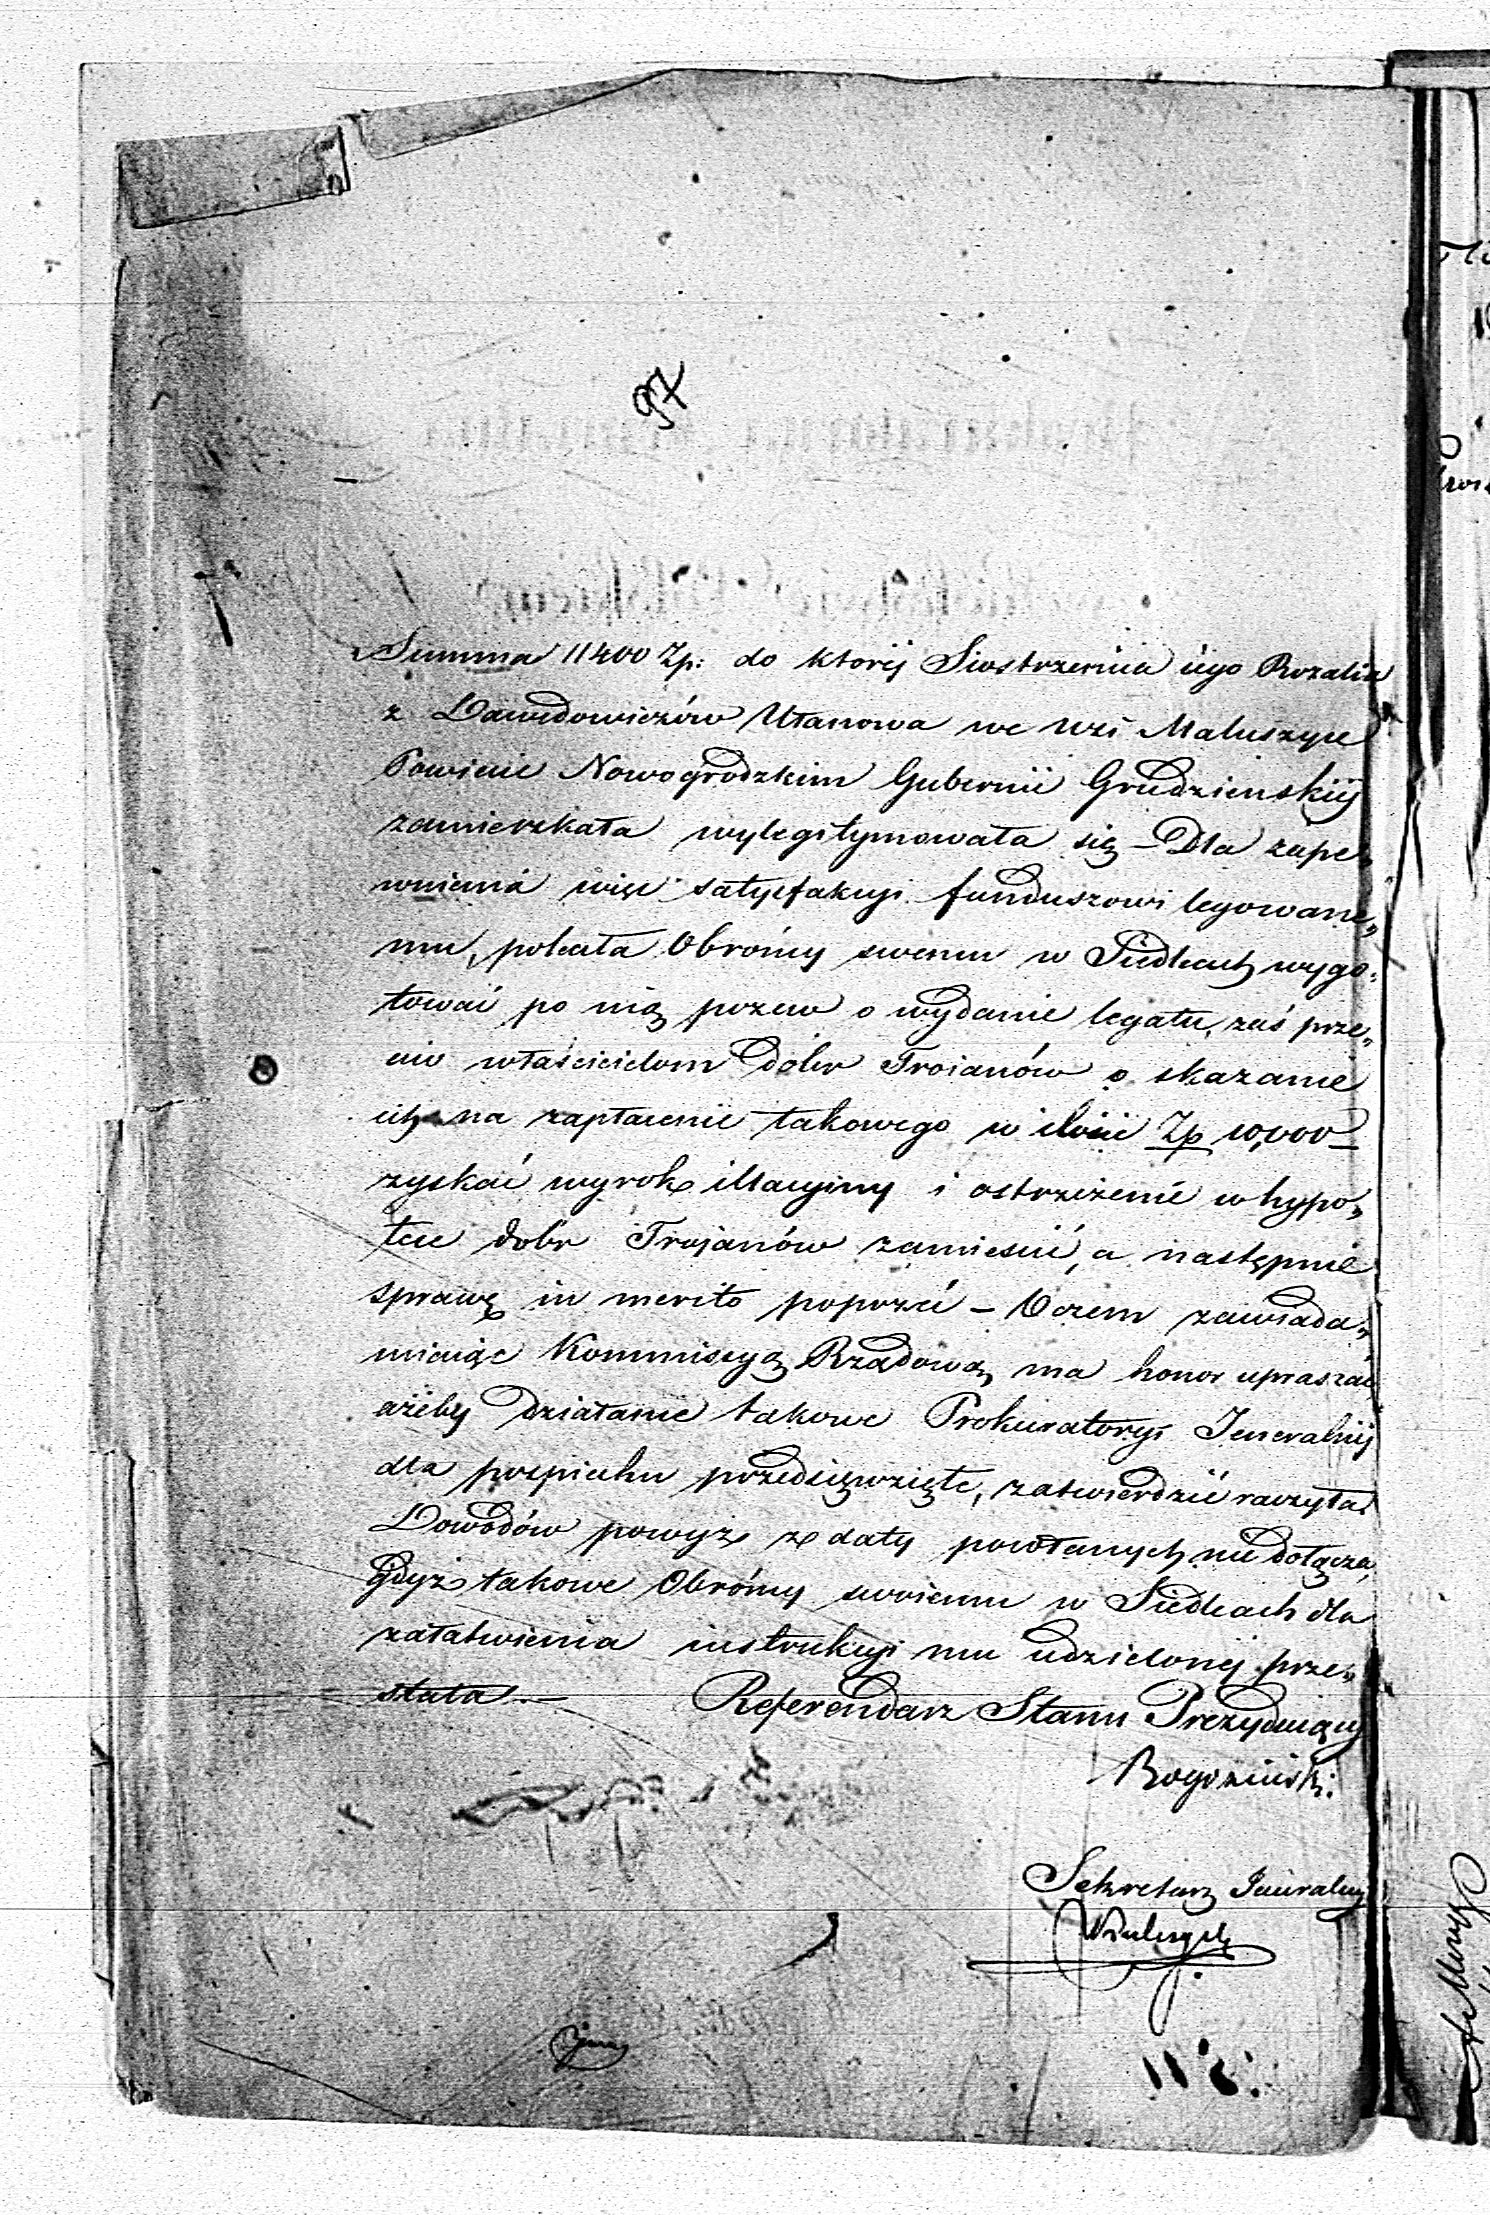 97
Summa 11400 Zp: do ktorej Siostrzenica iego Rozalia
z Dawidowiczów Ułanowa we wsi Maluszyce
Powiecie Nowogrodzkim Gubernii Grudzienskiij
zamieszkała wylegitymowała się – Dla zape„
wnienia więc satysfakcyi funduszowi legowane„
mu, poleciła Obrońcy swemu w Siedlcach wygo„
tować po nią pozew o wydanie legatu, zaś prze„
ciw właścicielom dóbr Troianów o skazanie
ich na zapłacenie takowego w ilości Zp 10,000
zyskać wyrok illacyiny i ostrzeżenie w hypo„
tece dobr Trojanów zamieścić, a następnie
sprawę in merito poprzeć – O czem zawiada„
miaiąc Kommissyą Rządową ma honor upraszać
ażeby działanie takowe Prokuratoryi Jeneralnij
dla pospiechu przedsięwzięte, zatwierdzić raczyła.
Dowodów powyż z daty powołanych nie dołącza,
gdyż takowe Obrońcy swoiemu w Siedlcach dla
załatwienia instrukcyi mu udzielonej prze„
słała. —
Referendarz Stanu Prezyduiący
Rogoziński.
Sekretarz Jeneralny